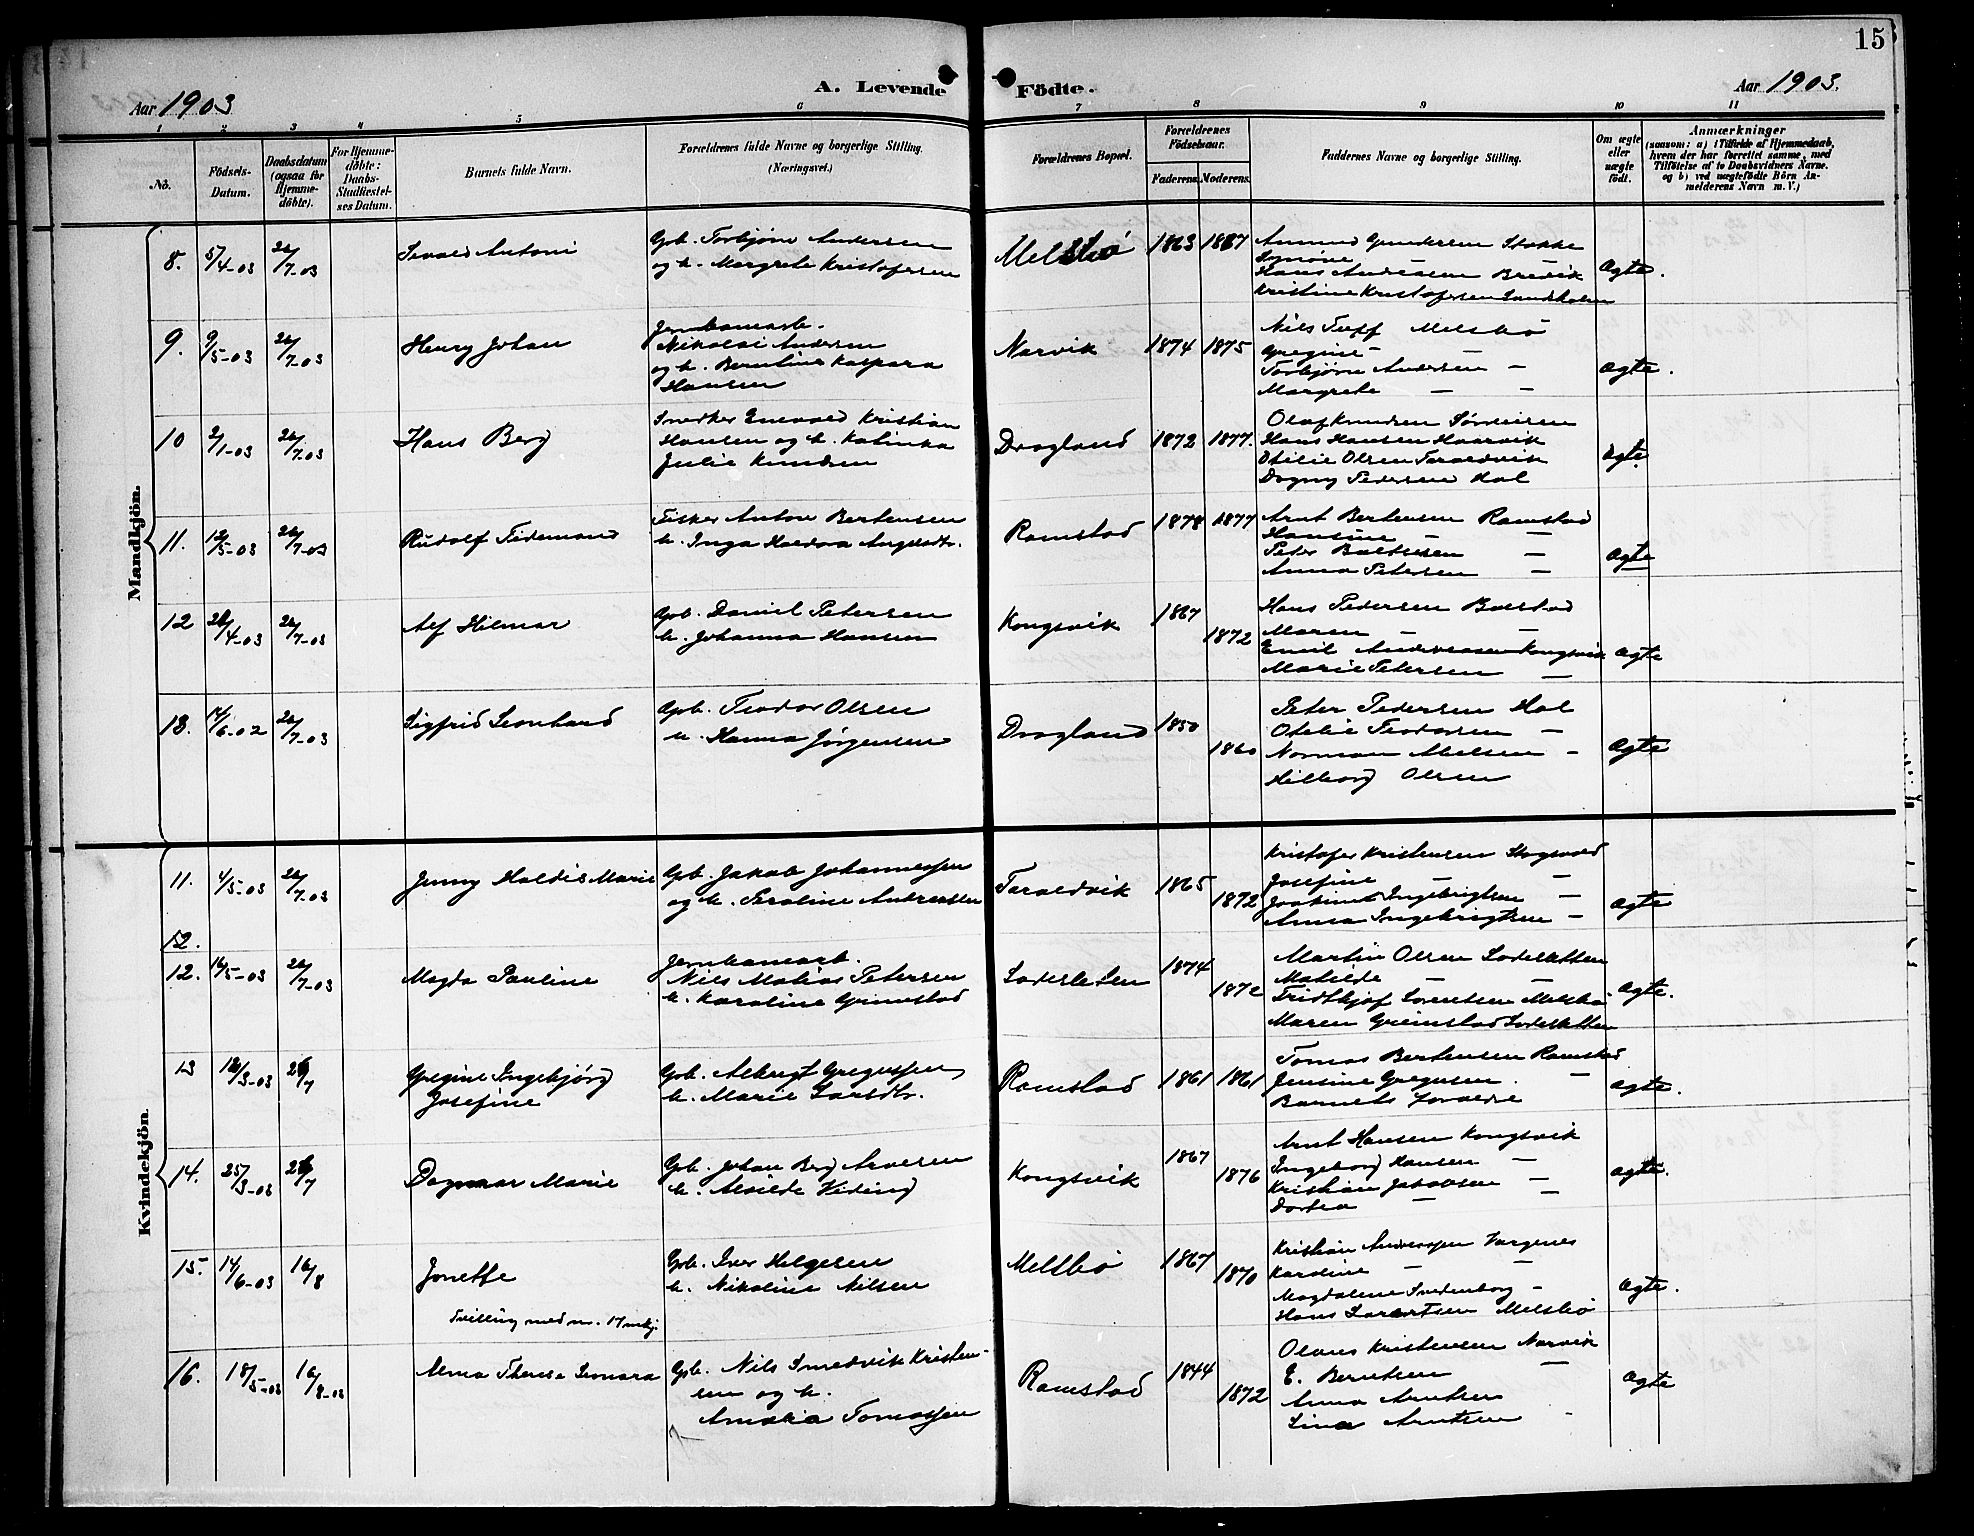 15
A. Levende Födte.
Aar 1903
Aar 1903.
1 2 3 4 5 6 7 8 9 10 11
No.
Födsels-
Datum.
Daabsdatum
(ogsaa for
Hjemme-
döbte).
For Hjemme-
döbte:
Daabs-
Stadfæstel-
ses Datum.
Barnets fulde Navn.
Forældrenes fulde Navne og borgerlige Stilling.
(Næringsvei.)
Forældrenes Bopæl.
Forældrenes
Födselsaar.
Faderens. Moderens.
Faddernes Navne og borgerlige Stilling.
Om ægte
eller
uægte
födt.
Anmærkninger
(saasom: a) i Tilfælde af Hjemmedaab,
hvem der har forrettet samme, med
Tilföielse af to Daabsvidners Navne.
og b) ved uægtefödte Börn An-
melderens Navn m. V.)
Mandkjön.
8. 5/4-03 26/7-03 Sevald Antoni
Gpb. Torbjørn Andersen
og h. Margrete Kristofersen
Melsbø 1863 1867
Amund Gundersen Stokke
Hans Andreasen Brevik
Kristine Kristofersen Sandholm
ægte.
9. 9/5-03 26/7-03 Henry Johan
Jernbanearb.
Nikolai Andersen
og h. Berntine Kaspara
Hansen
Narvik 1874 1875
Nils Tupf Melsbø
Gregine — —
Torbjørn Andersen —
Margrete — —
ægte.
10 2/1-03 26/7-03 Hans Berg
Snedker Enevald Kristian
Hansen og h. Katinka
Julie Knudsen
Dragland 1872 1877.
Olaf Knudsen
Hans Hansen Haarvik
Otilie Olsen Taraldvik
Dagny Pedersen Hol
ægte
11. 12/5-03 26/7-03 Rudolf Tidemand
Fisker Anton Berteusen
h. Inga Haldora
Ramstad 1878 1877
Arnt Berteusen Ramstad
Hansine — —
Peter —
Anna Petersen —
ægte
12 26/4-03 26/7-03 Alf Hilmar
Gpb. Daniel Petersen
h. Johanna Hansen
Kongsvik 1867 1872
Hans Pedersen Balstad
Maren — —
Emil Andreassen Kongsvik
Marie Petersen —
ægte
13. 14/6-02 26/7-03 Sigfrid Leonhard
Gpb. Teodor Olsen
h. Hanna Jørgensen
Dragland 1850 1860
Peter Pedersen Hol
Otelie Teodorsen —
Norman Nielsen —
Hilborg Olsen
ægte
Kvindekjön.
11. 4/5-03 26/7-03 Jenny Haldis Marie
Gpb. Jakob Johannessen
og h. Peroline Andreassen
Taraldvik 1865 1872
Kristofer Kristensen Skogsvold
Josefine — —
Joakima Ingebrigtsen —
Anna Ingebrigtsen —
ægte
12.
12. 16/5-03 26/7-03 Magda Pauline
Jernbanearb.
Nils Matias Petersen
h. Karoline Grimstad
Sandersletten 1874 1872
Martin Olsen
Matilde — —
Fridtjof Sørensen Melsbø
Maren Grimstad
ægte.
13 12/3-03 26/7 Gregine Ingebjørg
Josefine
Gpb. Albregt Gregussen
h. Marie Larsdtr.
Ramstad 1861 1861
Tomas Berteusen Ramstad
Jensine Gregusen. —
Barnets Forældre
ægte.
14. 25/3-03 26/7 Dagmar Marie
Gpb. Johan Berg Arnesen
h. Alvilde Hiding
Kongsvik 1867 1876
Arnt Hansen Kongsvik
Ingeborg Hansen —
Kristian Jakobsen —
Dortea — —
ægte.
15. 14/6-03 16/8 Jonette
Tvilling med n. 17 mkj.
Gpb. Iver Helgesen
h. Nikoline Nilsen
Melsbø 1867 1870
Kristian Andreassen
Karoline — —
Magdalene —
Hans Melsbø
ægte.
16. 18/5-03 16/8-03 Alma Therese Leonara
Gpb. Nils Smedvik Kristen-
sen og h.
Amalia Tomassen
Ramstad 1844 1872
Olaus Kristensen Narvik
E. Berntsen —
Anna Arntsen
Lina Arntsen —
ægte